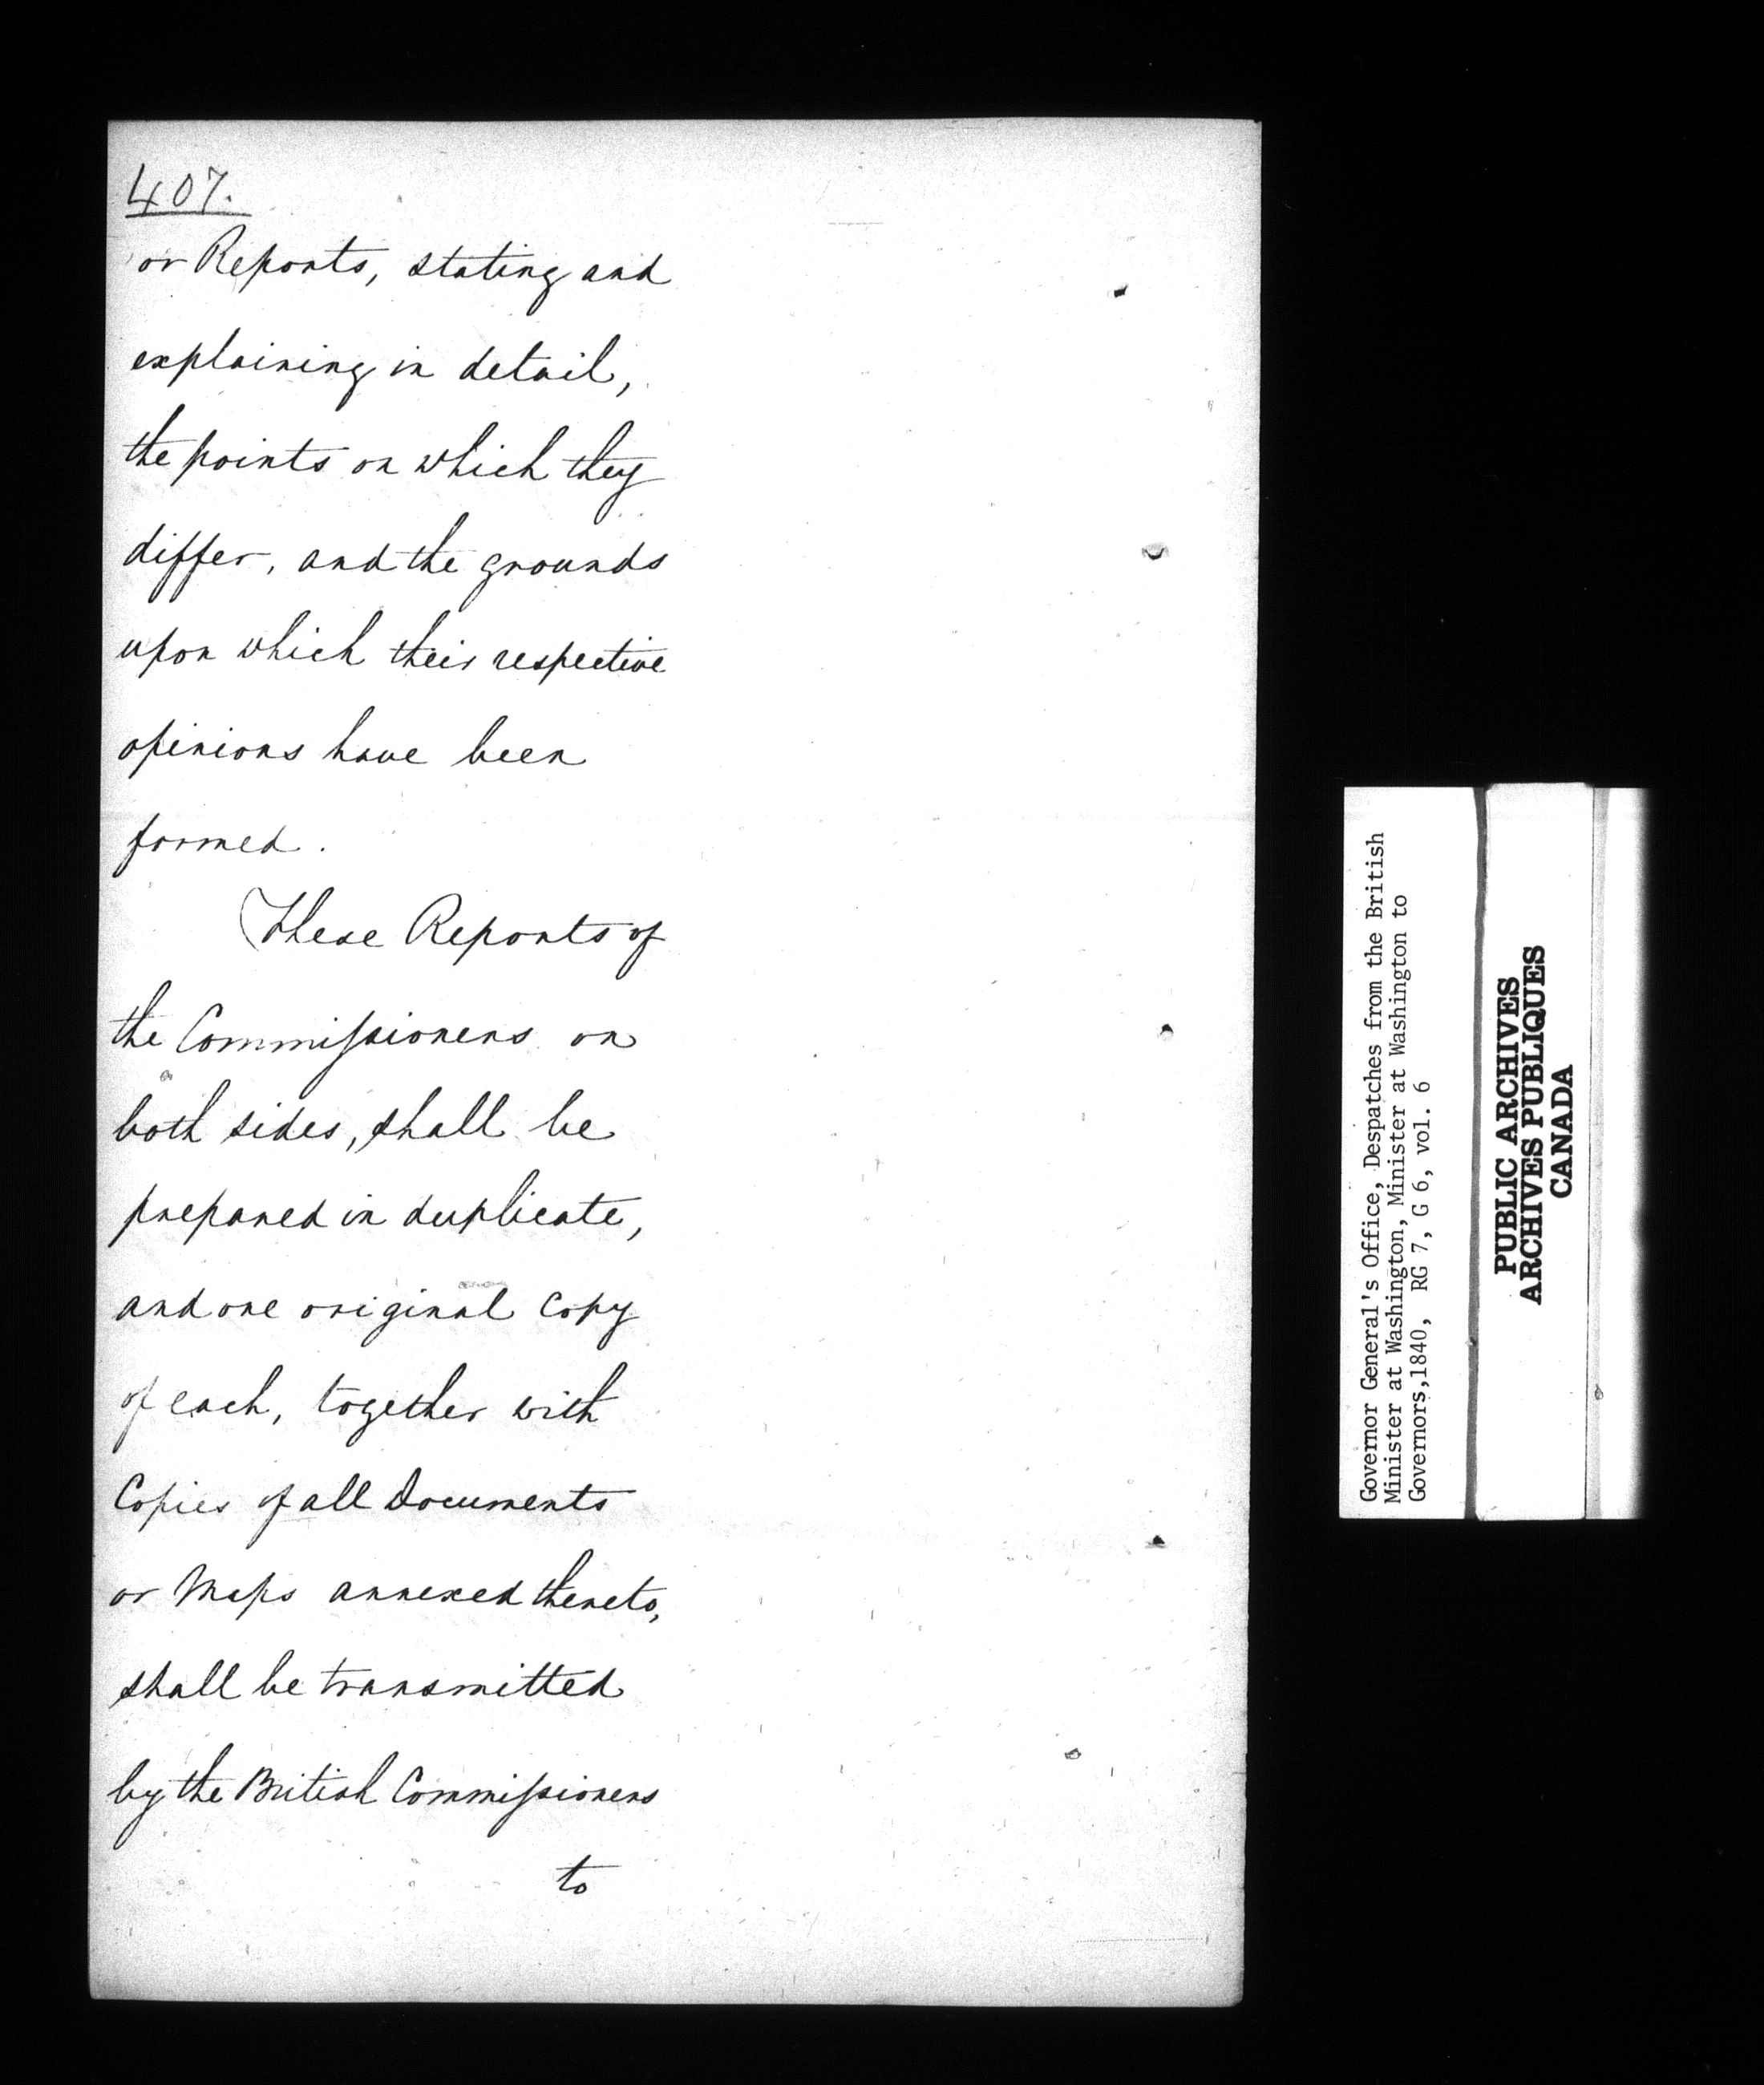 407.
or Reports, stating and
explaining in detail,
the points on which they
differ, and the grounds
upon which their respective
opinions have been
formed.
These Reports of
the Commissioners on
both sides, shall be
prepared in duplicate,
and one original Copy
of each, together with
Copies of all Documents
or Maps annexed thereto,
shall be transmitted
by the British Commissioners
to
Governor General's Office, Despatches from the British
Minister at Washington, Minister at Washington to
Governors,1840, RG 7, G 6, vol. 6
PUBLIC ARCHIVES
ARCHIVES PUBLIQUES
CANADA